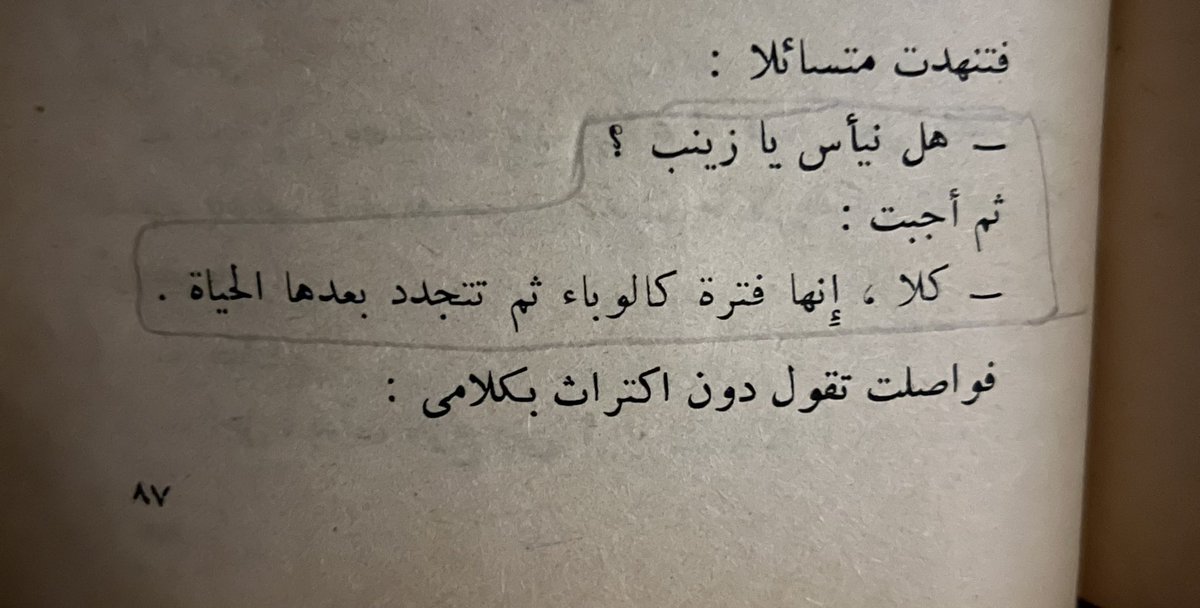 فتنهدت متسائلا :
ـ هل نيأس يا زينب ؟
ثم أجبت :
ـ كلا ، إنها فترة كالوباء ثم تتجدد بعدها الحياة .
فواصلت تقول دون اكتراث بكلامى :
٨٧